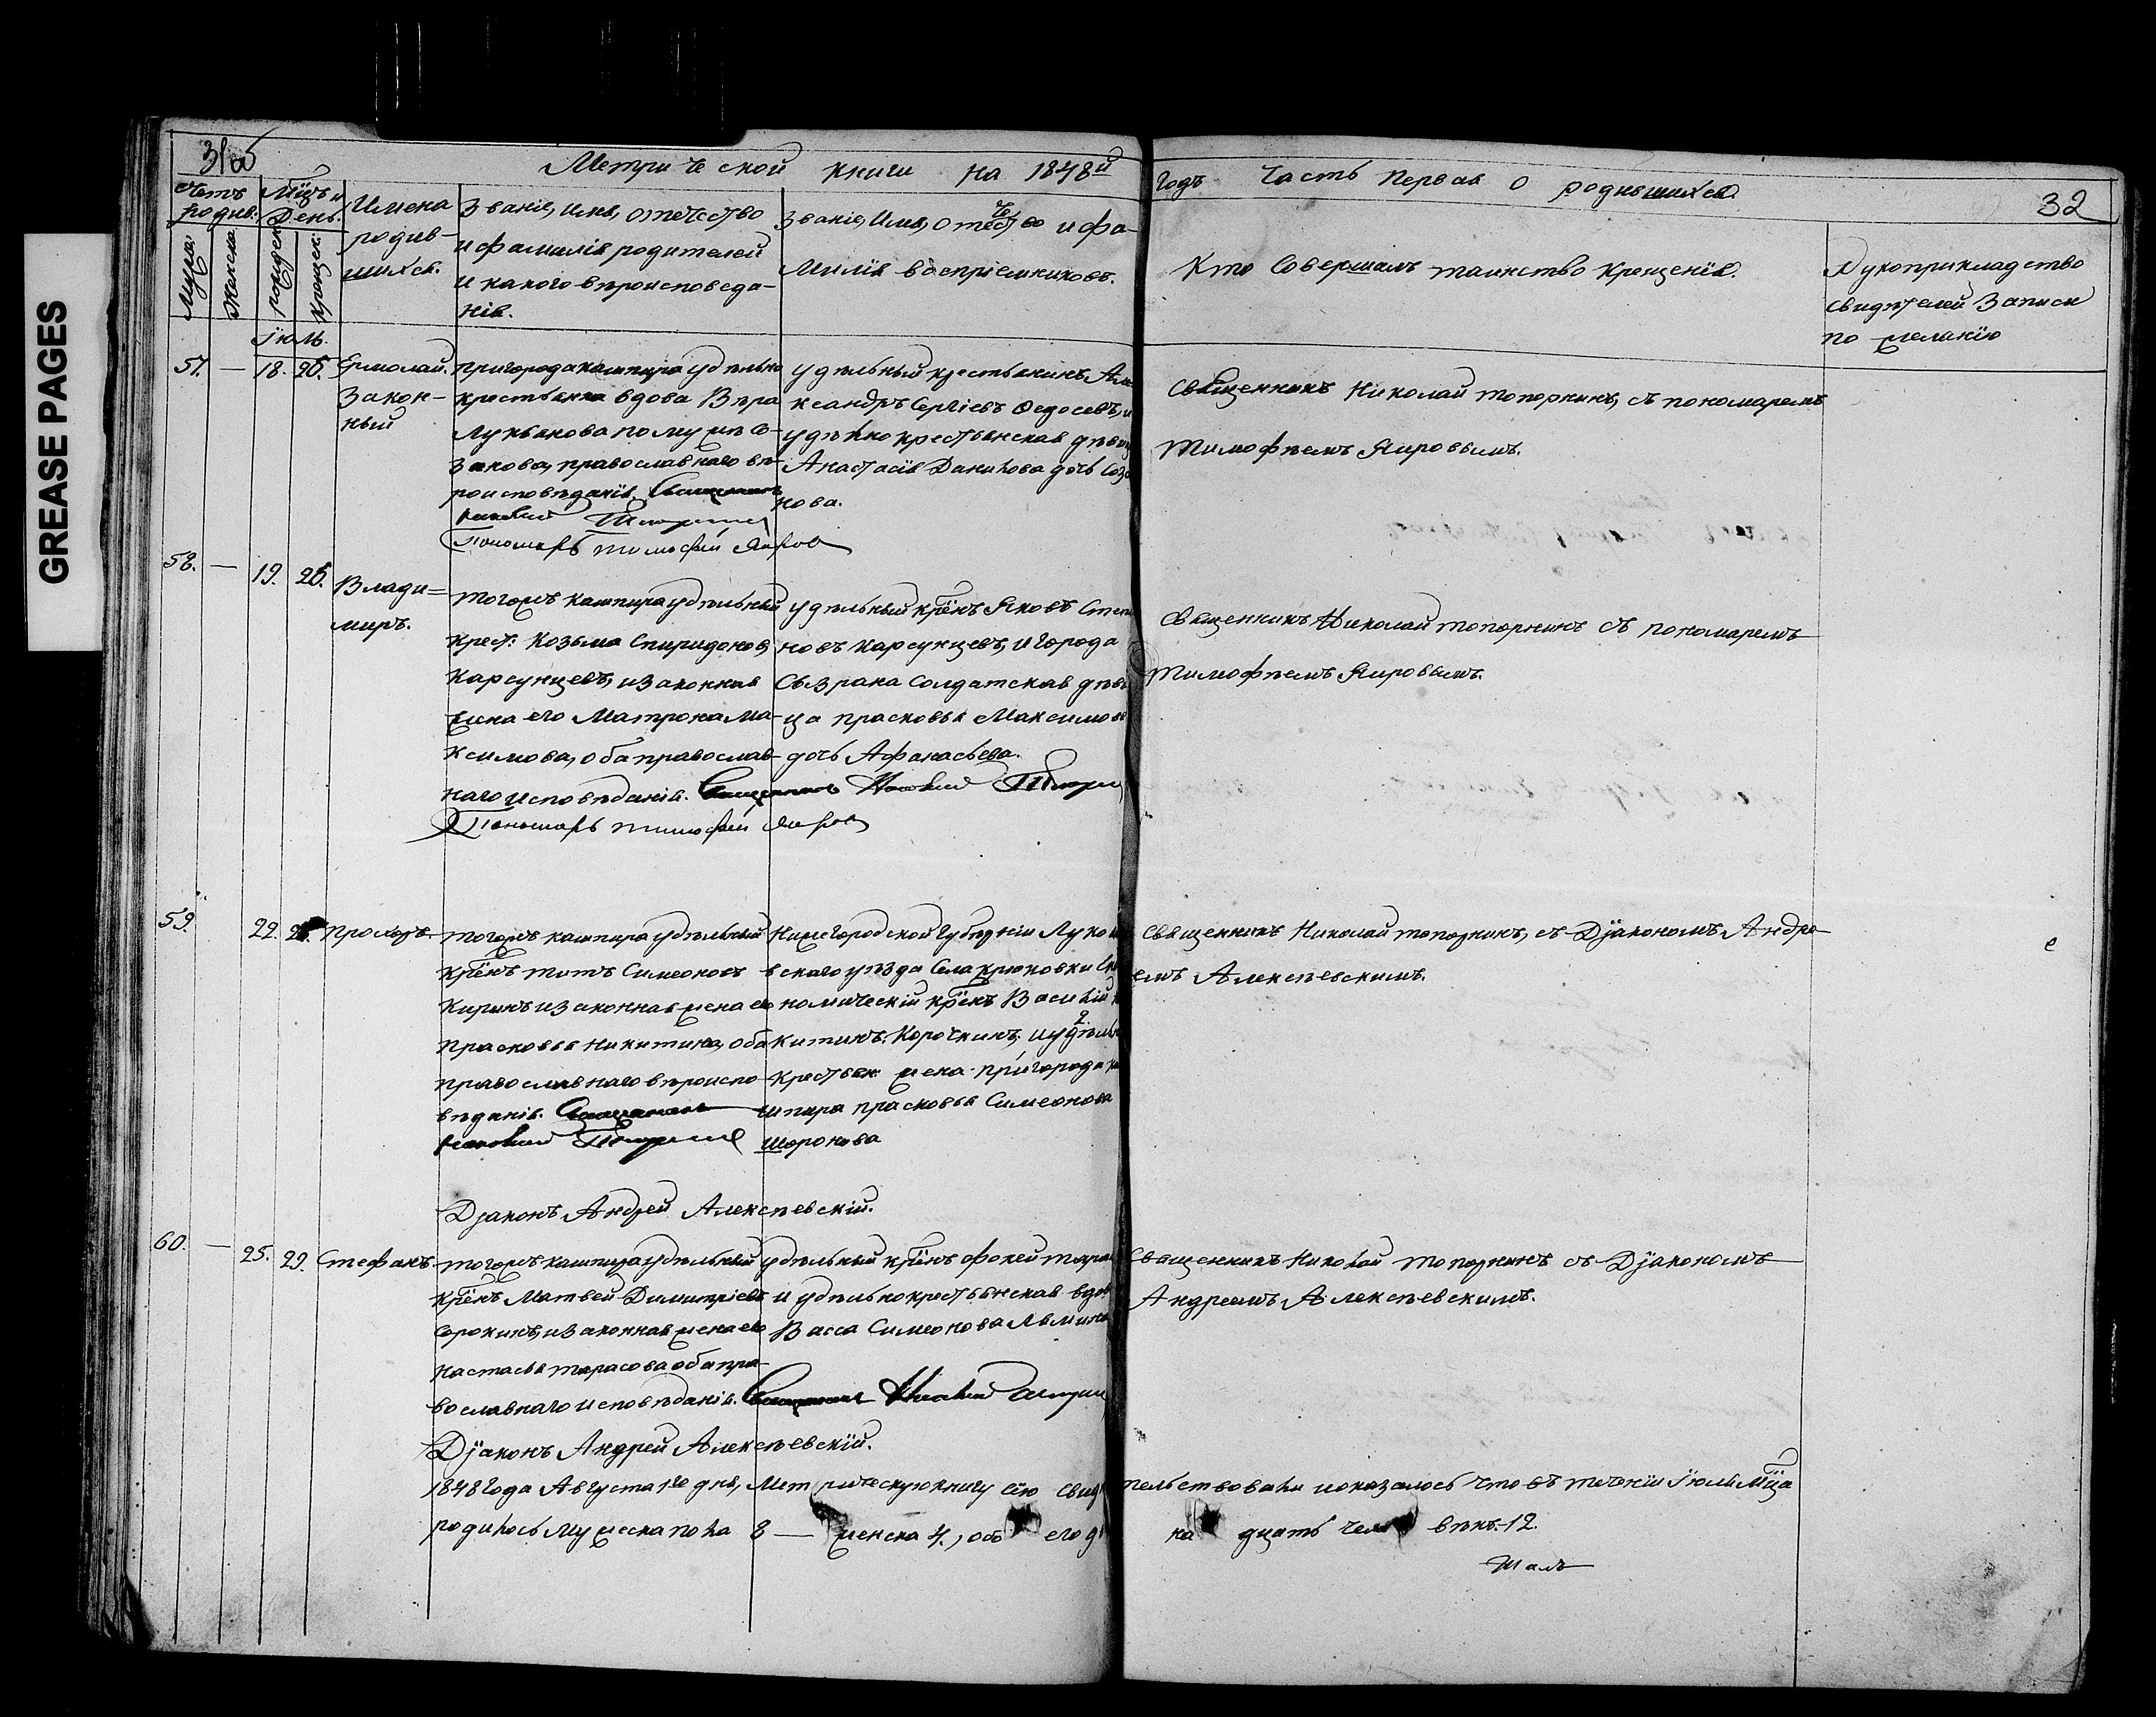 GREASE PAGES
31об
Метрической книги на 1848й
Годъ Часть Первая о родившихся.
32
Счетъ родив:
Мцъ и День.
Имена родив-
шихся.
Званіе, имя, отечество
и фамилія родителей
и какого вѣроисповеда-
нія.
Званіе, Имя, отечество и фа-
милія воспріемниковъ.
Кто Совершалъ таинство крещенія.
Рукоприкладство
свидѣтелей записи
по желанію
Мужск:
Женска
рожден
крещен:
Іюль.
57. — 18. 25. Ермолай.
Закон-
ный
пригорода кашпира удѣльно
крестьянка вдова Вѣра
Лукьянова по мужѣ Со-
занова, православнаго вѣ-
роисповѣданія. Священникъ
Николай Топорнинъ
Пономарь Тимофей Яиров
удѣльный крестьянинъ Але
ксандръ Сергіевъ Федосѣевъ, и
удѣльно крестьянская дѣвиц
Анастасія Данилова дочь Соза
нова.
Священникъ Николай топорнинъ, съ пономаремъ
Тимофѣемъ Яировымъ.
58. — 19. 25. Влади=
миръ.
тогожъ кашпира удѣльный
крест: Козьма Спиридонов
Карсунцевъ, и законная
жена его Матрона Ма-
ксимова, оба православ-
наго исповѣданія. Священникъ Николай Топорн
Пономарь Тимофей Яиров
удѣльный крѣнъ Яковъ Степа
новъ Карсунцевъ, и города
Сызрана Солдатская дѣви
ца прасковья Максимов
дочь Афанасьева.
Священникъ Николай топорнинъ съ пономаремъ
Тимофѣемъ Яировымъ.
59. 22. Прохоръ.
тогожъ кашпира удѣльный
крѣнъ титъ Симеоновъ
Киринъ и законная жена его
прасковья Никитина, оба
православнаго вѣроиспо-
вѣданія. Священникъ
Николай Топорнинъ
Дїаконъ Андрей Алексѣевскій.
Нижегородской Губерніи Лукоя
вскаго уѣзда Села крюковки Эко
номическій крѣнъ Василій Ни
китинъ. Корочкинъ, и удѣльн
крестьян: жена пригорода ка
шпира прасковья Симеонова
Шоронова
Священникъ Николай топорнинъ, съ Дїакономъ Андре
емъ Алексѣевскимъ.
60. — 25. 29. Стефанъ.
тогожъ кашпира удѣльный
крѣнъ Матвей Димитріевъ
Сорокинъ, и законная жена его
настасья тарасова оба пра-
вославнаго исповѣданія. Священникъ Николай Топорн
Дїаконъ Андрей Алексѣевскїй.
удѣльный крѣнъ фокей тара
и удѣльнокрестьянская вдов
Васса Симеонова Лямина
Священникъ Николай топорнинъ съ Дїакономъ
Андреемъ Алексѣевскимъ.
1848 года Августа 1го дня, Метрическую книгу сїю свидѣтельствовали и оказалось что въ теченїи Іюля Мца
родилось Мужеска пола 8 — женска 4., обоего д на дцать человѣкъ. 12.